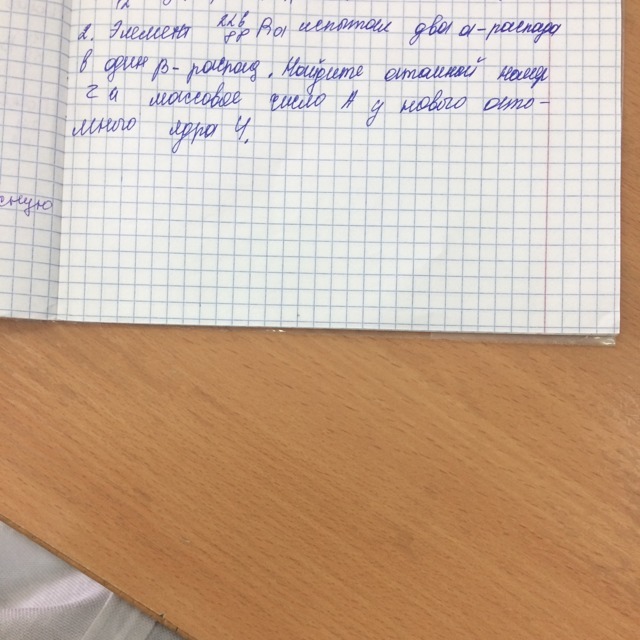 2. Элемент 226 88 Ra испытал два α-распада
в один β-распад. Найдите атомный номер
Z и массовое число A у нового ато-
много ядра Y.
сную